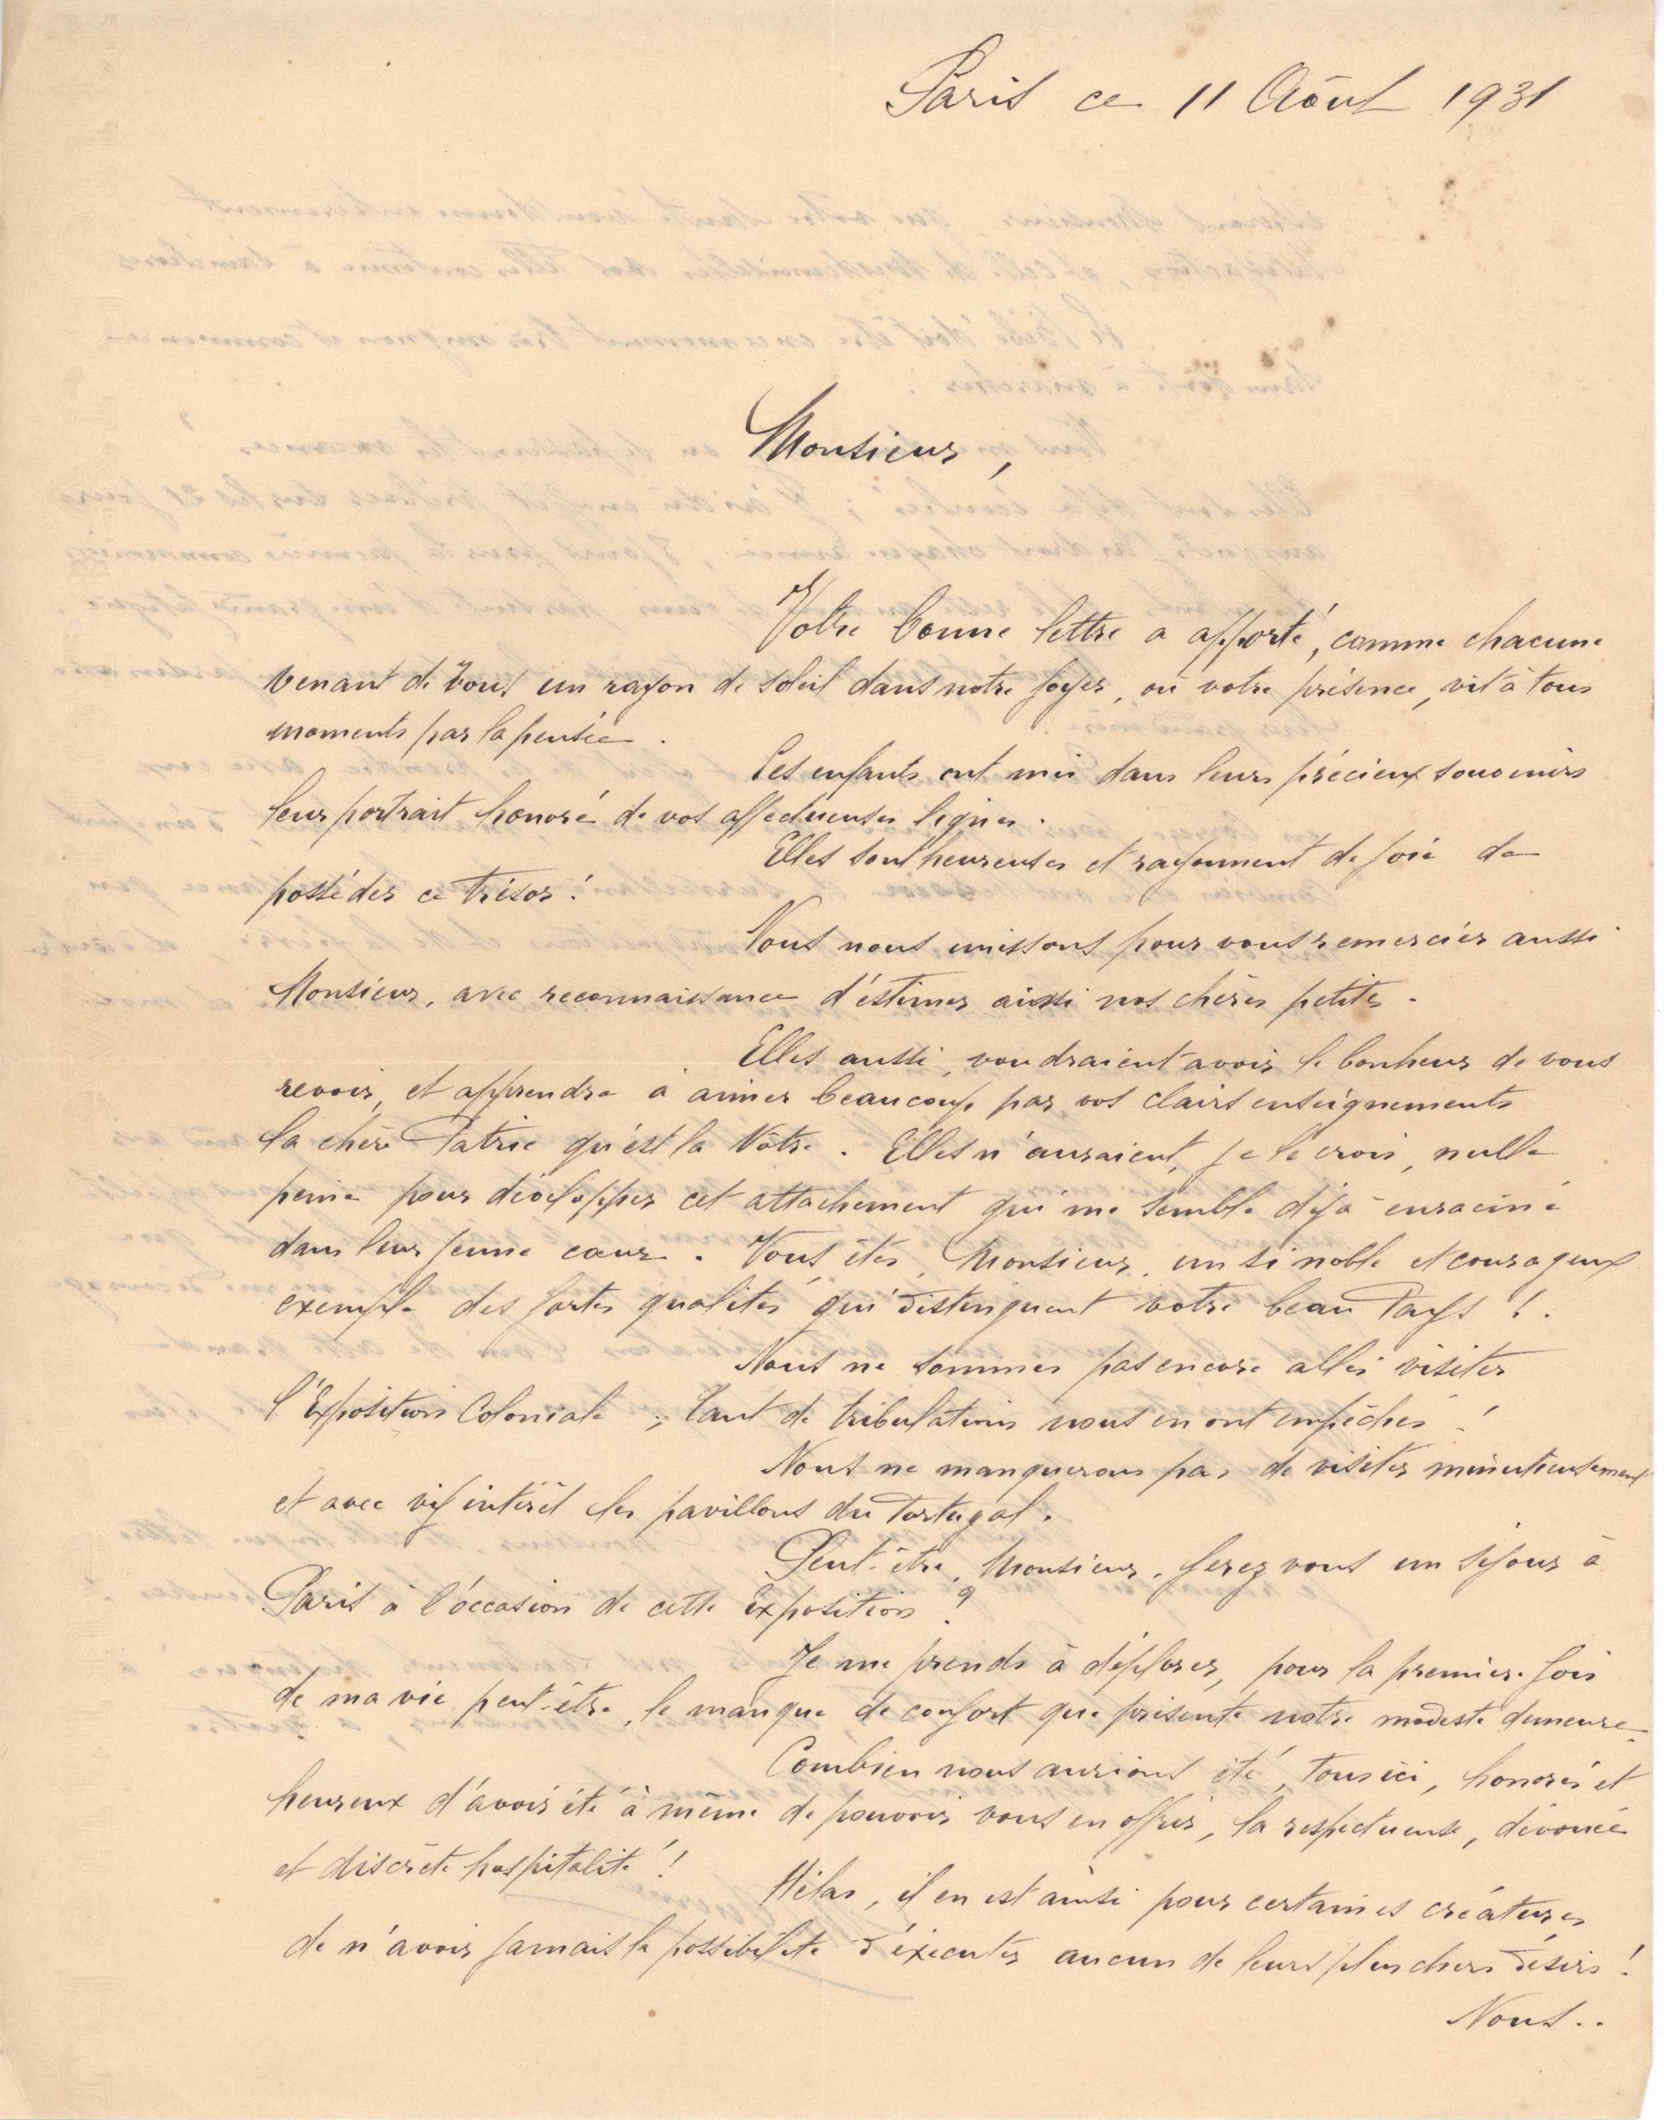 Paris ce 11 Août 1931
Monsieur,
Votre bonne lettre a apporté, comme chacune
venant de Vous un rayon de soleil dans notre foyer, où votre présence, vit à tous
moments par la pensée.
Les enfants ont mis dans leurs précieux souvenirs
leur portrait honoré de vos affectueuses lignes.
Elles sont heureuses et rayonnent de joie de
posséder ce trésor!
Nous nous unissons pour vous remercier aussi
Monsieur, avec reconnaissance d'estimer ainsi nos chères petites.
Elles aussi, voudraient avoir le bonheur de vous
revoir, et apprendre à aimer beaucoup par vos clairs enseignements
la chère Patrie qu'est la Vôtre. Elles n'auraient, je le crois, nulle
peine pour développer cet attachement qui me semble déjà enraciné
dans leur jeune cœur. Vous êtes, Monsieur, un si noble et courageux
exemple des fortes qualités qui distinguent votre beau Pays!.
Nous ne sommes pas encore allés visiter
l'Exposition Coloniale; tant de tribulations nous en ont empêchés!
Nous ne manquerons pas de visiter minutieusement
et avec vif intérêt les pavillons du Portugal.
Peut-être, Monsieur, ferez vous un séjour à
Paris à l'occasion de cette Exposition?
Je me prends à déplorer, pour la première fois
de ma vie peut-être, le manque de confort que présente notre modeste demeure.
Combien nous aurions été, tous ici, honorés et
heureux d'avoir été à même de pouvoir vous en offrir, la respectueuse, dévouée
et discrète hospitalité!
Hélas, il en est ainsi pour certaines créatures
de n'avoir jamais la possibilité d'éxécuter aucun de leurs plus chers désirs!
Nous..